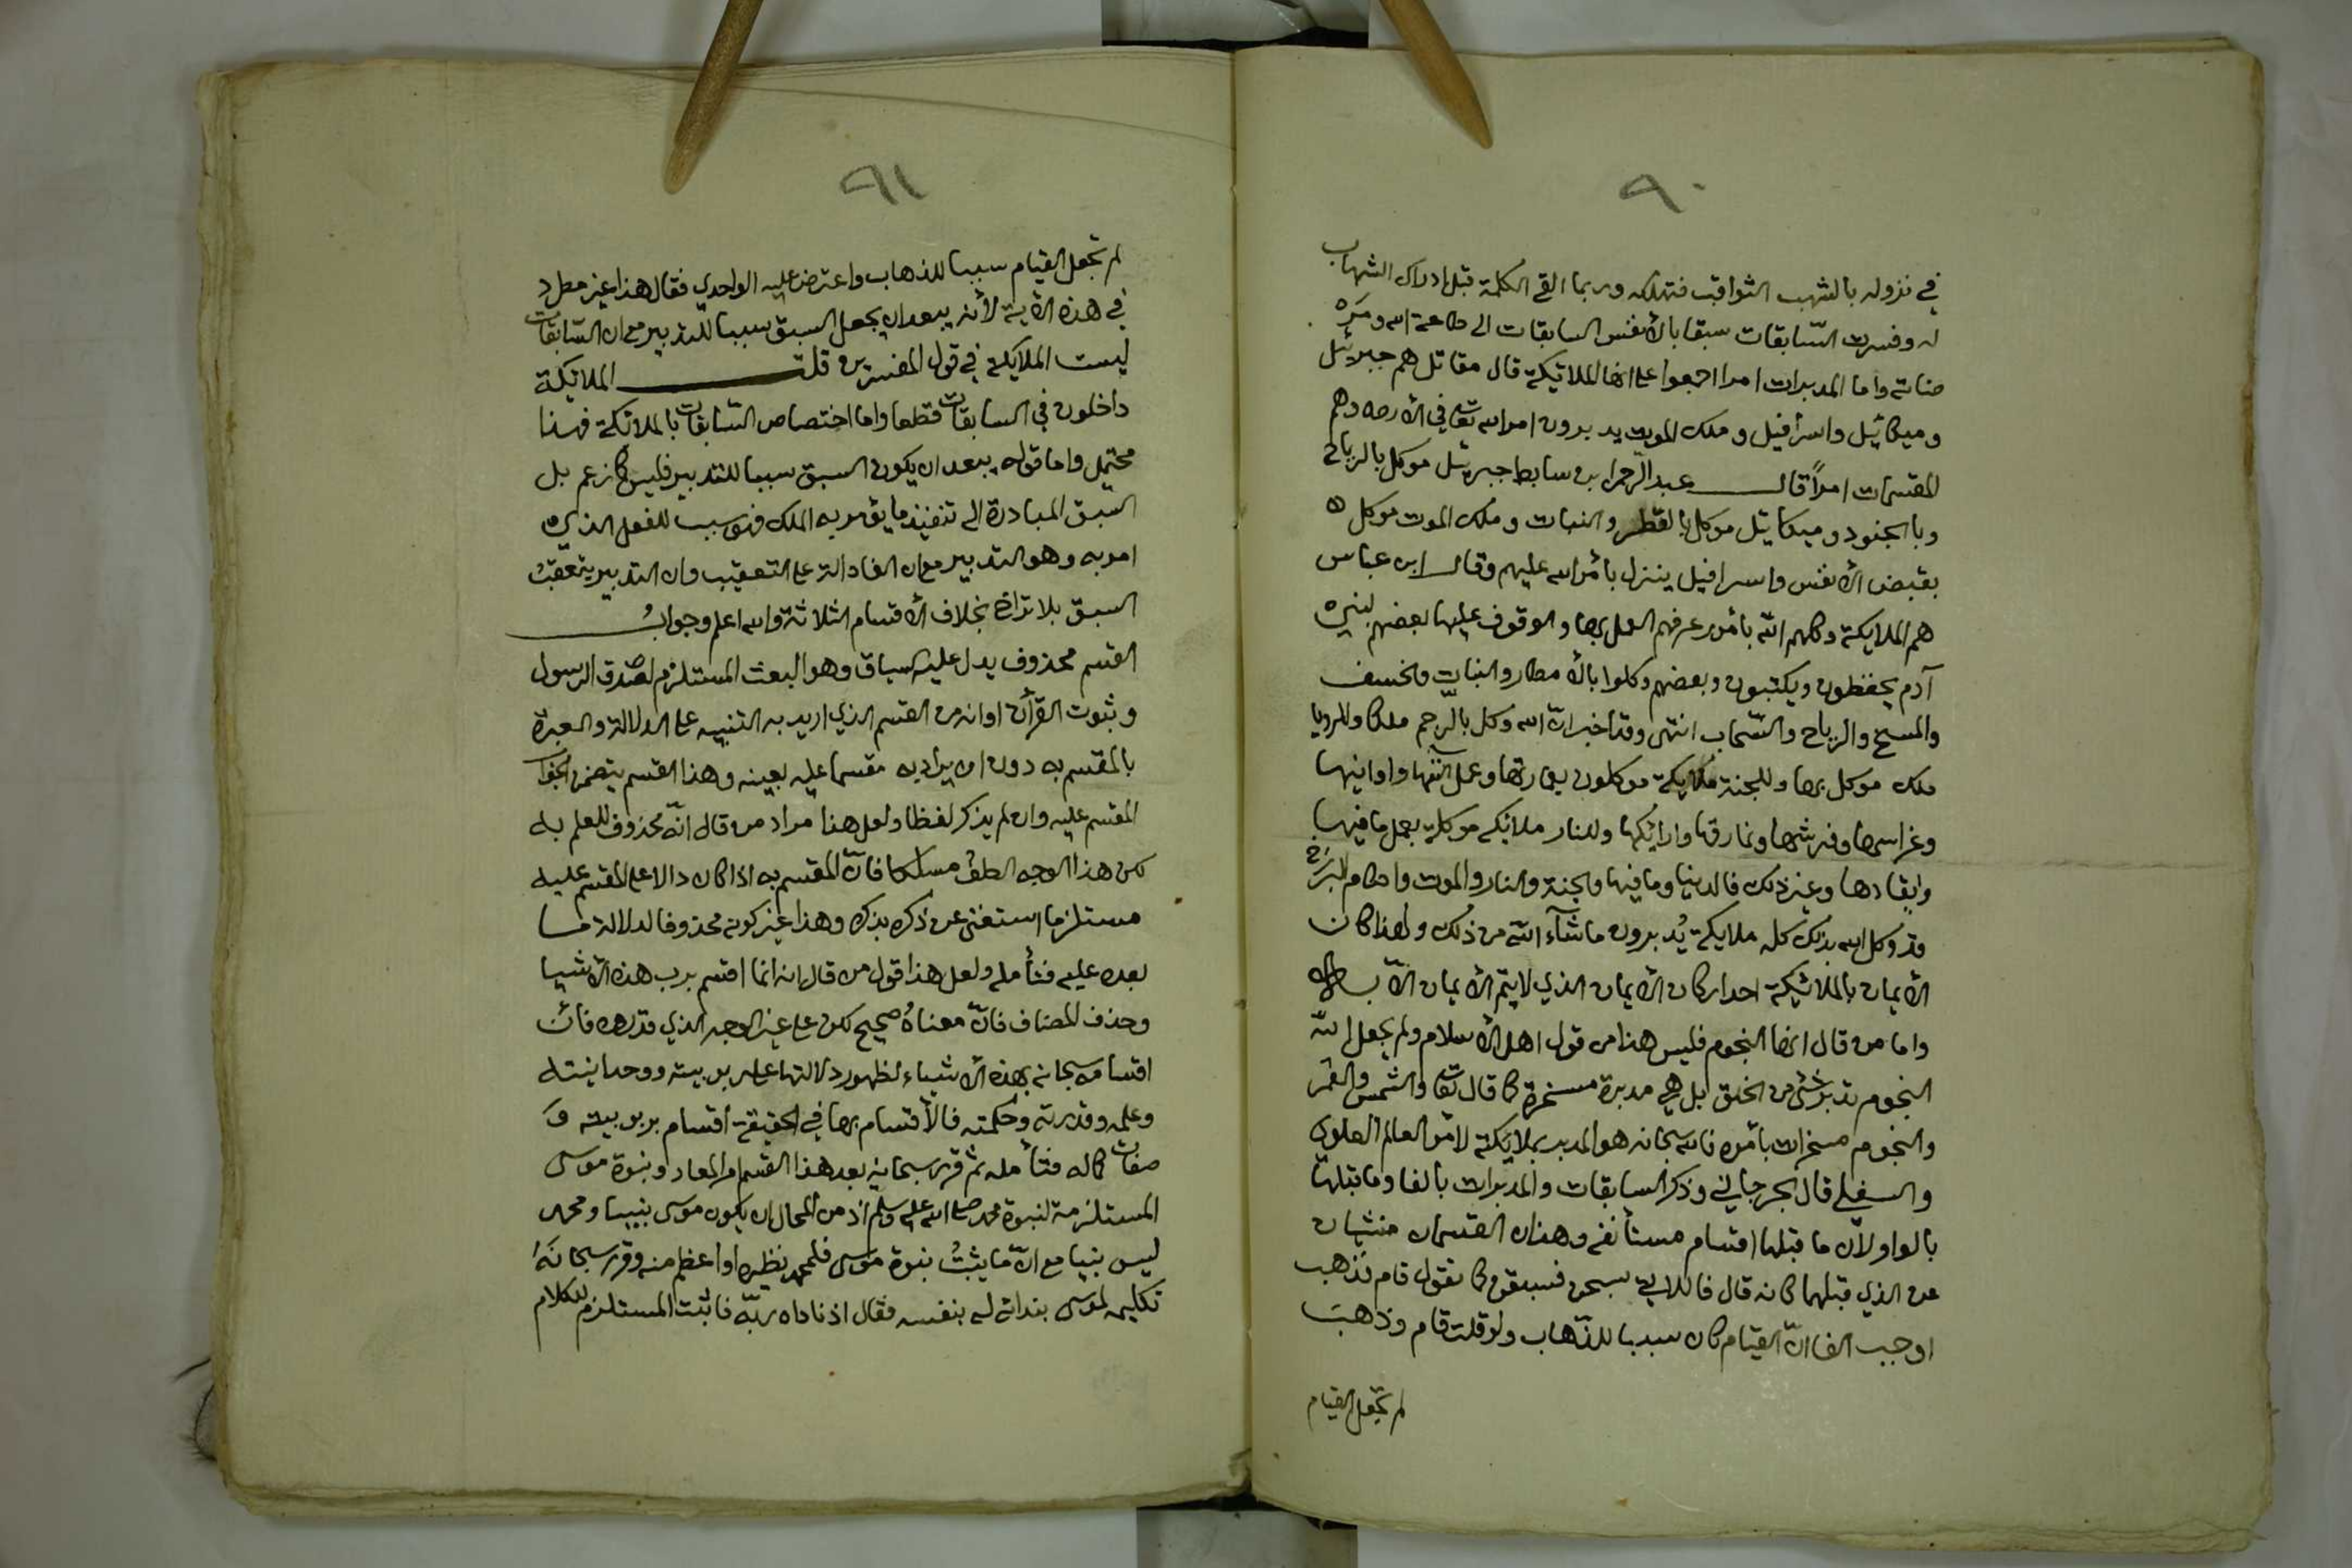 ٩٠
في نزوله بالشهب الثواقب فتهلكه وربما القى الكلمة قبل ادراك الشهاب
له وفسرت السّابقات سبقا بالأنفس السابقات الى طاعة الله ومر
ضاته واما المدبرات امرا اجمعوا على انها الملائيكة قال مقاتل هم جبرئيل
وميكائيل واسرافيل وملك الموت يدبرون امر الله تعالى في الأرض وهم
المقسمات امراً قال عبد الرحمن بن سابط جبرئيل موكل بالرياح
وبالجنود وميكائيل موكل بالقطر والنبات وملك الموت موكل
بقبض الأنفس واسرافيل ينزل بأمر الله عليهم وقال ابن عباس
هم الملايكة وكلهم الله بأمور عرفهم العمل بها والوقوف عليها بعضهم لبني
آدم يحفظون ويكتبون وبعضهم وكلوا بالأمطار والنبات والخسف
والمسخ والرياح والسّحاب انتهى وقد اخبر انّ الله وكل بالرحم ملكا وللرويا
ملك موكل بها وللجنة ملايكة موكلون بعمارتها وعمل آلتها واوانيها
وغراسها وفرشها ونمارقها وارائكها وللنار ملائكة موكلة بعمل ما فيها
وايقادها وغير ذلك فالدنيا وما فيها والجنة والنار والموت واحكام البرزخ
قد وكل الله بذلك كله ملايكة يُدبرون ما شآء الله من ذلك ولهذا كان
الأيمان بالملائيكة احد اركان الأيمان الذي لا يتم الأيمان الّا به
واما من قال انها النجوم فليس هذا من قول اهل الأسلام ولم يجعل الله
النجوم تدبر شيء من الخلق بل هي مدبرة مسخرة كما قال تعالى والشمس والقمر
والنجوم مسخرات بأمره فالله سبحانه هو المدبر بملائكة لأمر العالم العلوي
والسفلي قال الجرجاني وذكر السابقات والمدبرات بالفا وما قبلها
بالواو لأن ما قبلها اقسام مستأنفه وهذان القسمان منشيان
عن الذي قبلهما كانه قال فاللاتي سبحن فسبقن كما تقول قام فذهب
اوجب الفا انّ القيام كان سببا للذّهاب ولو قلت قام وذهبت
لم تجعل القيام
٩١
لم تجعل القيام سببا للذهاب واعترض عليه الواحدي فقال هذا غير مطرد
في هذه الأية لأنه يبعد ان يجعل السبق سببا للتدبير مع ان السّابقات
ليست الملايكة في قول المفسرين قلت الملائيكة
داخلون في السابقات قطعا واما اختصاص السّابقات بالملائكة فهذا
محتمل واما قوله يبعد ان يكون السبق سببا للتدبير فليس كما زعم بل
السبق المبادرة الى تنفيذ ما يؤمر به الملك فهو سبب للفعل الذي
امر به وهو التدبير مع ان الفا دالة على التعقيب وان التدبير يتعقب
السبق بلا تراخ بخلاف الأقسام الثلاثة والله اعلم وجواب
القسم محذوف يدل عليه السياق وهو البعث المستلزم لصدق الرسول
وثبوت القرآن او انه من القسم الذي اريد به التنبيه على الدلالة والعبرة
بالمقسم به دون ان يراد به مقسما عليه بعينه وهذا القسم يتضمن الجواب
المقسم عليه وان لم يذكر لفظا ولعل هذا مراد من قال انّه محذوف للعلم به
لكن هذا الوجه الطف مسلكا فانّ المقسم به اذا كان دالا على المقسم عليه
مستلزما استغنى عن ذكره بذكره وهذا غير كونه محذوفا لدلالة ما
بعده عليه فتأمله ولعل هذا قول من قال انه انما اقسم برب هذه الأشيا
وحذف المضاف فانّ معناهُ صحيح لكن على غير الوجه الذي قدروه فان
اقسامه سبحانه بهذه الأشياء لظهور دلالتها على ربوبيته ووحدانيته
وعلمه وقدرته وحكمته فالأقسام بها في الحقيقة أقسام بربوبيته و
صفات كماله فتأمله ثم قرر سبحانه بعد هذا القسم امر المعاد ونبوة موسى
المستلزمة لنبوة محمد صلى الله عليه وسلم اذ من المحال ان يكون موسى نبيا ومحمد
ليس نبيا مع انّ ما يثبتُ نبوة موسى فلمحمد نظيره او اعظم منه وقرر سبحانَهُ
تكليمه لموسى بندائه له بنفسه فقال اذ ناداه ربّه فاثبت المستلزم للكلام